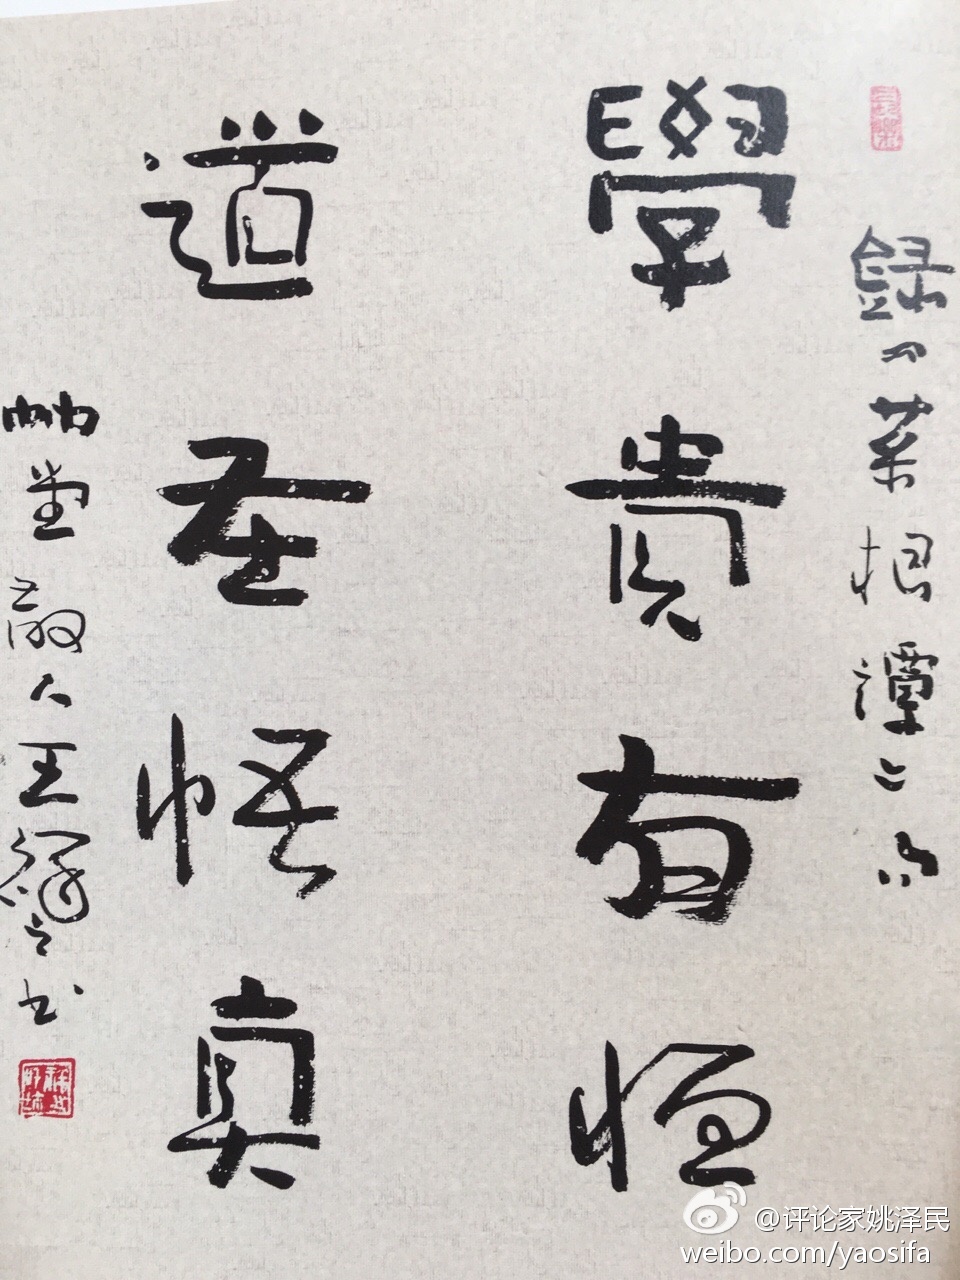 錄四菜根譚二句
學貴有恒
道在悟真
艸堂散人王鐸之書
@评论家姚泽民
weibo.com/yaosifa